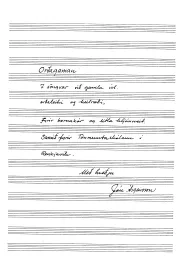 Orðagaman
7 söngvar við gamla
og
fyrir barnakór og litla hljómsveit
Samið fyrir Tónmenntaskólann í
Reykjavík.
Með kveðju
Jón Ásgeirsson